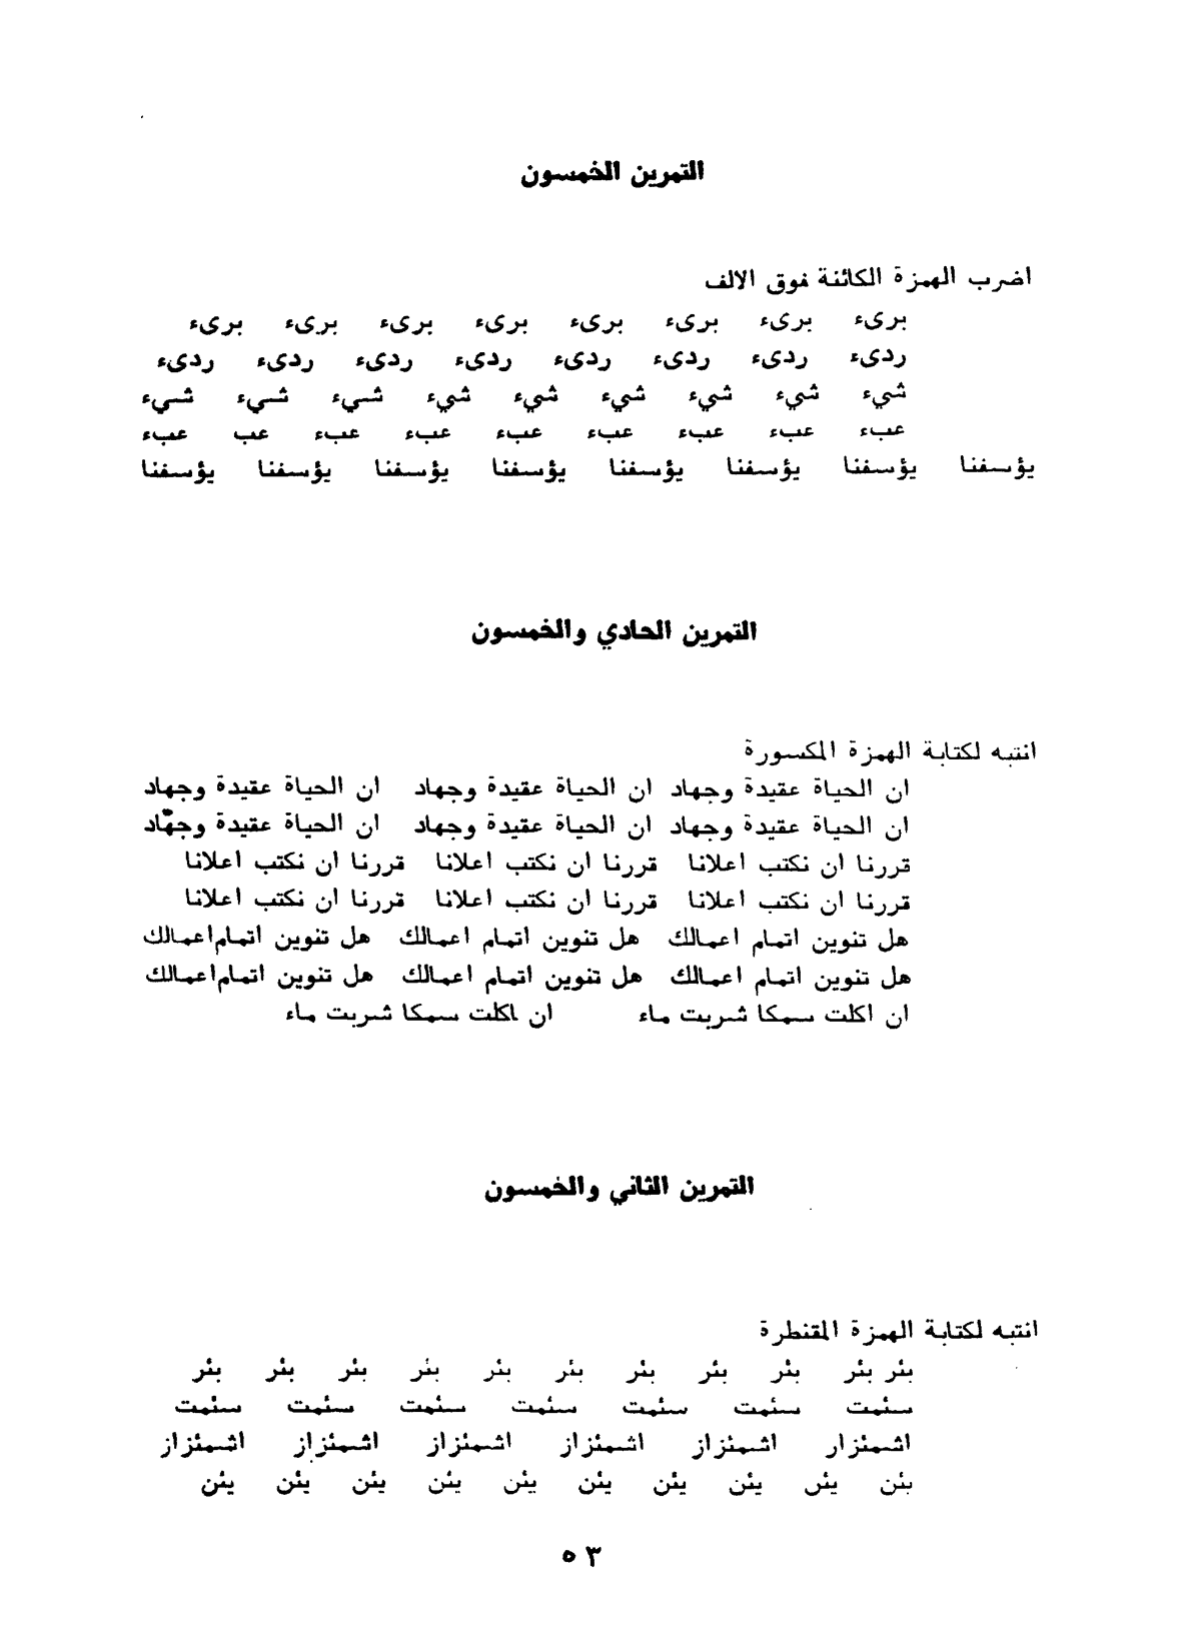 التمرين الخمسون
اضرب الهمزة الكائنة فوق الالف
برىء برىء برىء برىء برىء برىء برىء برىء
ردىء ردىء ردىء ردىء ردىء ردىء ردىء ردىء
شيء شيء شيء شيء شيء شيء شيء شيء شيء
عبء عبء عبء عبء عبء عبء عبء عب عبء
يؤسفنا يؤسفنا يؤسفنا يؤسفنا يؤسفنا يؤسفنا يؤسفنا يؤسفنا
التمرين الحادي والخمسون
انتبه لكتابة الهمزة المكسورة
ان الحياة عقيدة وجهاد ان الحياة عقيدة وجهاد ان الحياة عقيدة وجهاد
ان الحياة عقيدة وجهاد ان الحياة عقيدة وجهاد ان الحياة عقيدة وجهاد
قررنا ان نكتب اعلانا قررنا ان نكتب اعلانا قررنا ان نكتب اعلانا
قررنا ان نكتب اعلانا قررنا ان نكتب اعلانا قررنا ان نكتب اعلانا
هل تنوين اتمام اعمالك هل تنوين اتمام اعمالك هل تنوين اتمام اعمالك
هل تنوين اتمام اعمالك هل تنوين اتمام اعمالك هل تنوين اتمام اعمالك
ان اكلت سمكا شربت ماء ان اكلت سمكا شربت ماء
التمرين الثاني والخمسون
انتبه لكتابة الهمزة المقنطرة
بئر بئر بئر بئر بئر بئر بئر بئر بئر بئر بئر
سئمت سئمت سئمت سئمت سئمت سئمت سئمت
اشمئزار اشمئزاز اشمئزاز اشمئزاز اشمئزاز اشمئزاز
بئن يئن يئن يئن يئن يئن يئن يئن يئن
٥٣